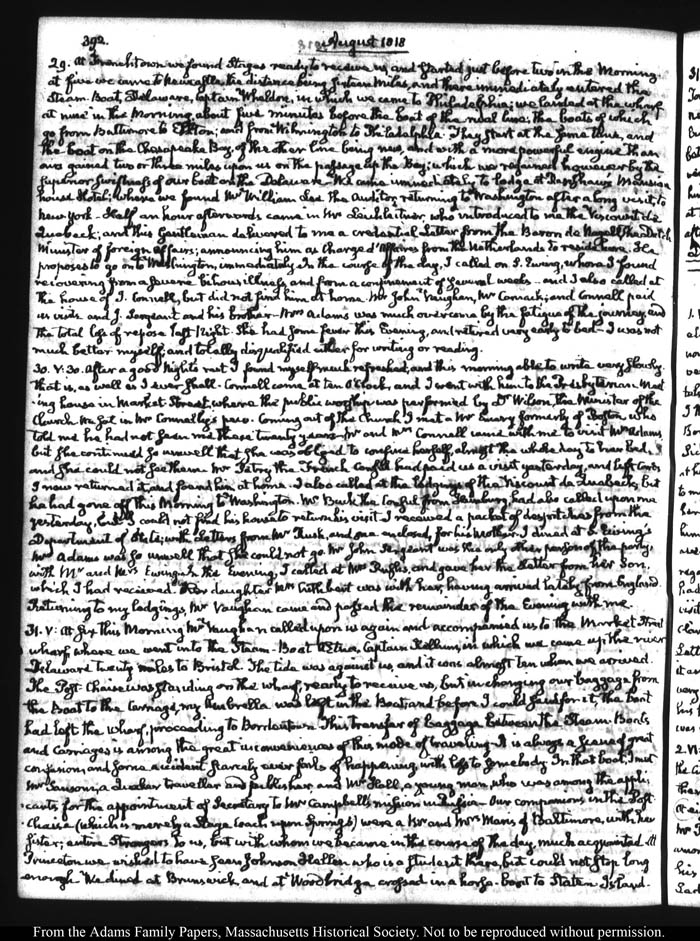 392.
August 1818
29. At Frenchtown we found Stages ready to receive us, and started just before two in the Morning.
at five we came to Newcastle the distance being sixteen Miles, and there immediately entered the
Steam-Boat, Delaware, Captain Whelden, in which we came to Philadelphia; we landed at the wharf
at nine in the Morning about five minutes before the boat of the rival line; the boats of which
go from Baltimore to Elkton; and from Wilmington to Philadelphia. They start at the same time, and
the boat on the Chesapeake Bay, of the other line being new, and with a more powerful engine than
ours gained two or three miles upon us on the passage up the Bay; which we regained however by the
superior swiftness of our boat on the Delaware. We came immediately to lodge at Renshaw's Mansion
house Hotel; where we found Mr William Lee the Auditor, returning to Washington after a long visit, to
New York. Half an hour afterwards came in Mr Lechleitner, who introduced to me the Viscount de
Quabeck; and this Gentleman delivered to me a credential Letter from the Baron de Nagell, the Dutch
Minister of foreign affairs; announcing him as Chargé d'Affaires from the Netherlands to reside here. He
proposes to go on to Washington, immediately. In the course of the day, I called on S. Ewing, whom I found
recovering from a severe bilious illness, and from a confinement of several weeks—and I also called at
the house of J. Connell, but did not find him at home. Mr John Vaughan, Mr Cormick; and Connell paid
us visits and J. Sergeant and his brother—Mrs Adams was much overcome by the fatigue of the journey, and
the total loss of repose last Night. She had some fever this Evening, and retired very early to bed—I was not
much better myself; and totally disqualified either for writing or reading.
30. V:30. After a good Night's rest I found myself much refreshed, and this morning able to write very slowly.
that is, as well as I ever shall. Connell came at ten O'Clock, and I went with him to the Presbyterian Meet
ing house in Market Street, where the public worship was performed by Dr Wilson, the Minister of the
Church. We sat in Mr Connelly's pew. Coming out of the Church I met a Mr Emery formerly of Boston who
told me he had not seen me these twenty years. Mr and Mrs Connell came with me to visit Mrs Adams,
but she continued so unwell that she was obliged to confine herself, almost the whole day to her bed,
and she could not see them. Mr Petry, the French Consul had paid us a visit yesterday, and left Cards
I now returned it and found him at home. I also called at the lodgings of the Viscount de Quabeck; but
he had gone off this Morning to Washington. Mr Buck the Consul from Hamburg had also called upon me
yesterday, but I could not find his house to return his visit. I received a packet of despatches from the
Department of State; with Letters from Mr Rush, and one enclosed, for his Mother. I dined at S. Ewing's
Mrs Adams was so unwell that she could not go. Mr John Sergeant was the only other person of the party,
with Mr and Mrs Ewing. In the Evening, I called at Mrs Rush's, and gave her the Letter from her Son,
which I had received. Her daughter Mrs Cuthbert was with her, having arrived lately from England.
Returning to my lodgings, Mr Vaughan came and passed the remainder of the Evening with me.
31. V: At six this Morning Mr Vaughan called upon us again and accompanied us to the Market Street
wharf where we went into the Steam-Boat Etna, Captain Kellum, in which we came up the river
Delaware twenty miles to Bristol. The tide was against us, and it was almost ten when we arrived.
The Post-Chaise was standing on the wharf, ready to receive us, but in changing our baggage from
the Boat to the Carriage, my Umbrella was left in the Boat and before I could send for it, the boat
had left the wharf, proceeding to Bordentown. This transfer of baggage between the Steam-Boats
and Carriages is among the great inconveniences of this mode of travelling. It is always a scene of great
confusion, and some accident scarcely ever fails of happening, with loss to somebody. In that boat, I met
Mr Sansom, a Quaker traveller and publisher, and Mr Hall, a young man, who was among the appli-
cants for the appointment of Secretary to Mr Campbell's mission in Russia. Our companions in the Post
Chaise (which is merely a Stage Coach upon Springs) were a Mr and Mrs Mans of Baltimore, with her
Sister; entire Strangers to us, but with whom we became in the course of the day, much acquainted. At
Princeton we wished to have seen Johnson Hellen who is a student there, but could not stop long
enough. We dined at Brunswick, and at Woodbridge crossed in a horse-boat to Staten Island.
From the Adams Family Papers, Massachusetts Historical Society. Not to be reproduced without permission.